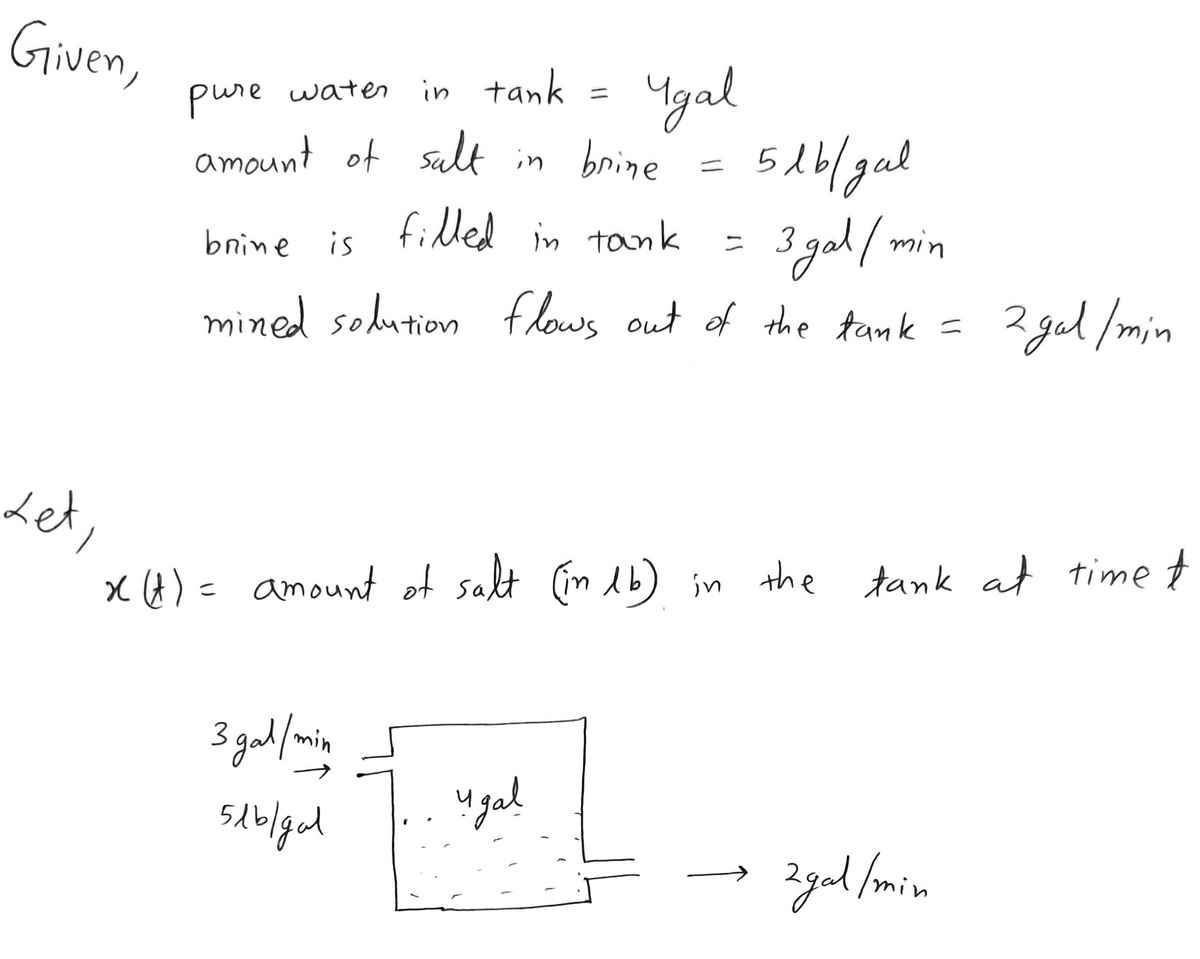 Given,
pure water in tank = 4gal
amount of salt in brine = 5 lb/gal
brine is filled in tank = 3 gal/min
mined solution flows out of the tank = 2 gal/min
Let,
x(t) = amount of salt (in lb) in the tank at time t
3 gal/min
→
5lb/gal
4 gal
→ 2gal/min